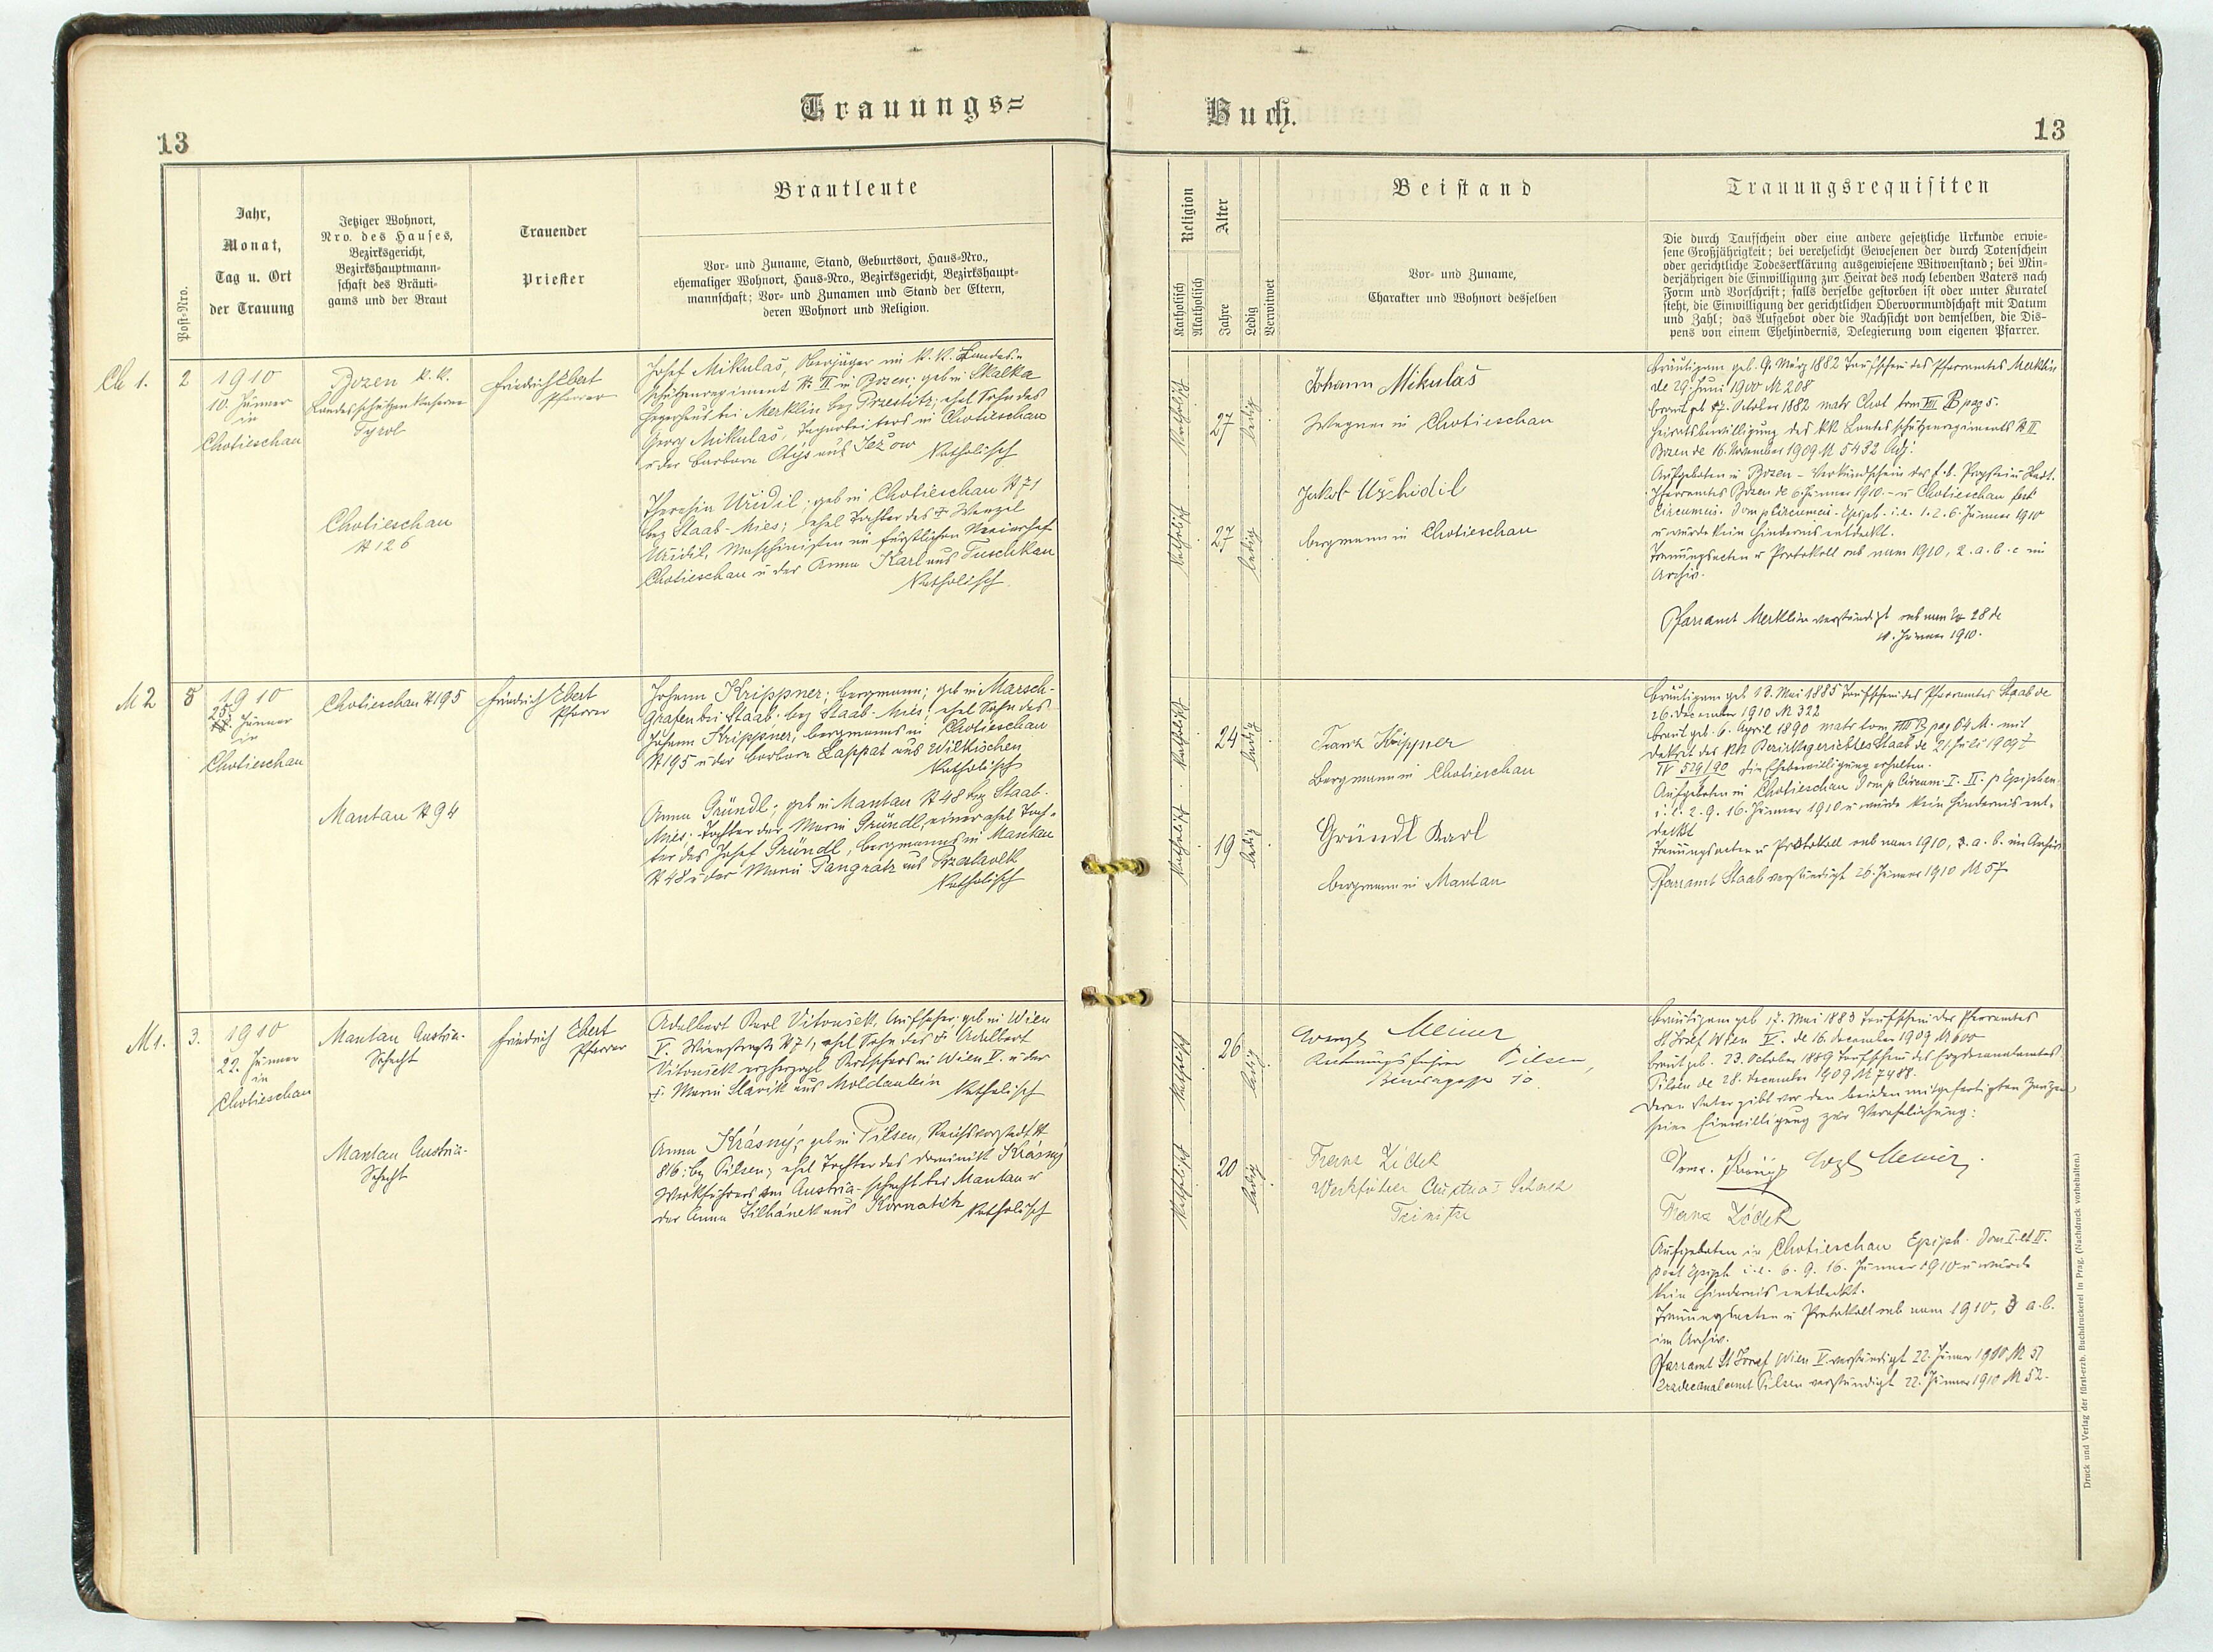 Trauungs=
Buch.
13
13
Post-Nro.
Jahr,
Monat,
Tag u. Ort
der Trauung
Jetziger Wohnort,
Nro. des Hauses,
Bezirksgericht,
Bezirkshauptmann-
schaft des Bräuti-
gams und der Braut
Trauender
Priester
Brautleute
Vor- und Zuname, Stand, Geburtsort, Haus-Nro.,
ehemaliger Wohnort, Haus-Nro., Bezirksgericht, Bezirkshaupt-
mannschaft; Vor- und Zunamen und Stand der Eltern,
deren Wohnort und Religion.
Religion
Katholisch
Akatholisch
Alter
Jahre
Ledig
Verwitwet
Beistand
Vor- und Zuname,
Charakter und Wohnort desselben
Trauungsrequisiten
Die durch Taufschein oder eine andere gesetzliche Urkunde erwie-
sene Großjährigkeit; bei verehelicht Gewesenen der durch Totenschein
oder gerichtliche Todeserklärung ausgewiesene Witwenstand; bei Min-
derjährigen die Einwilligung zur Heirat des noch lebenden Vaters nach
Form und Vorschrift; falls derselbe gestorben ist oder unter Kuratel
steht, die Einwilligung der gerichtlichen Obervormundschaft mit Datum
und Zahl; das Aufgebot oder die Nachsicht von demselben, die Dis-
pens von einem Ehehindernis, Delegierung vom eigenen Pfarrer.
Ch 1.
2
1910
10. Jänner
in
Chotieschau
Bozen k. k.
Landesschützen Kaserne
Tyrol
Chotieschau
N 126
Friedrich Ebert
Pfarrer
Josef Mikulaš, Oberjäger im k. k. Landes-
schützenregiment N II in Bozen; geb in Skalka
bei Merklin bez Przestitz; ehel Sohn des
Georg Mikulaš, in Chotieschau
u der Barbara aus Katholisch
Theresia Uředil; geb in Chotieschau N 71
bez Staab-Mies; ehel Tochter des † Wenzel
Uředil, Maschinisten im fürstlichen
Chotieschau u der Anna Karl aus Tuschkau
Katholisch
Katholisch
27
ledig
Katholisch
27
ledig
Johann Mikulaš
Wagner in Chotieschau
Jakob
Bergmann in Chotieschau
Bräutigam geb. 9. März 1882 Taufschein des Pfarramtes Merklin
de 29. Juni 1900 N 208
Braut geb 17. October 1882 matr Chot tom VIII B pag 5.
Heiratsbewilligung des kk Landesschützenregiments N II
Bozen de 16. November 1909 N 5432 Adj.
Aufgeboten in Bozen – Verkündschein des
Pfarramtes Bozen de 6. Jänner 1910. – u Chotieschau fest
i.e. 1. 2. 6. Jänner 1910
u wurde kein Hindernis entdeckt.
Trauungsacten u Protokoll sub num 1910, 2. a. b. c im
Archiv.
Pfarramt Merklin verständigt sub num 28 de
Jänner 1910.
M 2
1910
25 Jänner
in
Chotieschau
Chotieschau N 195
Mantau N 94
Friedrich Ebert
Pfarrer
Johann Krippner; Bergmann; geb in Marsch-
grafen bei Staab. bez Staab-Mies; ehel Sohn des
Johann Krippner, Bergmanns in Chotieschau
N 195 u der Barbara Lappat aus Wilkischen
Katholisch
Anna Gründl; geb in Mantau N 48 bez Staab-
Mies. Tochter der Maria Gründl, einer ehel Toch-
ter des Josef Gründl, Bergmanns in Mantau
N 48 u der Maria Pangratz aus
Katholisch
Katholisch
24
ledig
Katholisch
19
ledig
Franz Krippner
Bergmann in Chotieschau
Gründl Karl
Bergmann in Mantau
Bräutigam geb. 13. Mai 1885 Taufschein des Pfarramtes Staab de
26. December 1910 N 322
Braut geb. 6. April 1890 matr tom pag 64 M. mit
Dekret des kk Bezirksgerichtes Staab de 21. Juli 1909 Z
IV 529/90 die Ehebewilligung erhalten.
Aufgeboten in Chotieschau I. II. p Epiphan
i. e. 2. 9. 16. Jänner 1910 u wurde kein Hindernis ent-
deckt
Trauungsacten u Protokoll sub num 1910, 3. a. b. im Archiv
Pfarramt Staab verständigt 26. Jänner 1910 N 57
M 1.
3.
1910
22. Jänner
in
Chotieschau
Mantau Austria-
Schacht
Mantau Austria-
Schacht
Friedrich Ebert
Pfarrer
Adalbert Karl Vitoušek, Aufseher; geb in Wien
V. N 71; ehel Sohn des † Adalbert
Vitoušek erzherzogl in Wien V. u der
†. Maria Slavik aus Moldautein Katholisch
Anna Krásný; geb in Pilsen, Reichsvorstadt N
816. bez Pilsen; ehel Tochter des Dominik Krásný
Werkführers am Austria-Schacht bei Mantau u
der Anna Silhánek aus Katholisch
Katholisch
26
ledig
Katholisch
20
ledig
Wenzl Meiner
Rechnungsführer Pilsen,
10.
Franz Zídek
Werkführer Austria I Schacht
Teinitzl
Bräutigam geb 17. Mai 1883 Taufschein des Pfarramtes
St Josef Wien V. de 16. December 1909 N 600
Braut geb. 23. October 1889 Taufschein des Erzdecanalamtes
Pilsen de 28. December 1909 N 7488.
Deren Vater gibt vor den beiden mitgefertigten Zeugen
seine Einwilligung zur Verehelichung:
Wzl Meiner
Franz Zídek
Aufgeboten in Chotieschau Epiph. Dom I. et II.
post Epiph i.e. 6. 9. 16. Jänner 1910 u wurde
kein Hindernis entdeckt.
Trauungsacten u Protokoll sub num 1910, 3 a. b.
im Archiv.
Pfarramt St Josef Wien V. verständigt 22. Jänner 1910 N 51
Erzdecanalamt Pilsen verständigt 22. Jänner 1910 N 52.
Druck und Verlag der fürst-erzb. Buchdruckerei in Prag. (Nachdruck vorbehalten.)